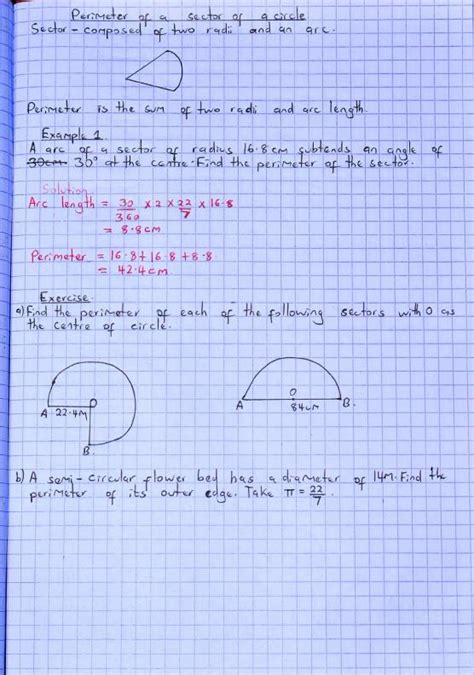 Perimeter of a sector of a circle
Sector - composed of two radii and an arc.
Perimeter is the sum of two radii and arc length.
Example 1
A arc of a sector of radius 16.8cm subtends an angle of
30cm 30° at the centre. Find the perimeter of the sector.
Solution
Arc length = 30/360 x 2 x 22/7 x 16.8
= 8.8cm
Perimeter = 16.8 + 16.8 + 8.8
= 42.4cm.
Exercise.
a) Find the perimeter of each of the following sectors with O as
the centre of circle.
O
A 22.4M
B
O
A 84cm B.
b) A semi-circular flower bed has a diameter of 14M. Find the
perimeter of its outer edge. Take π = 22/7.